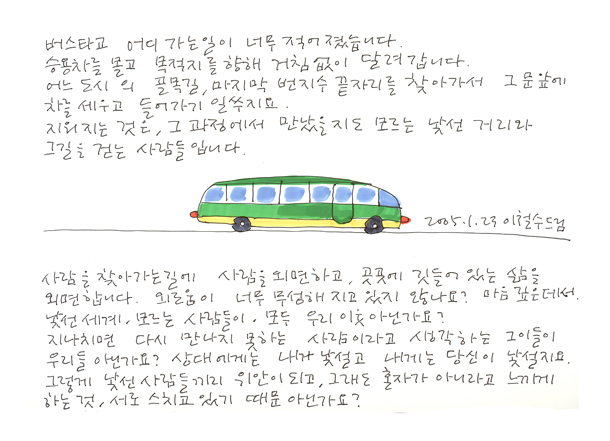 버스타고 어디 가는일이 너무 적어졌습니다.
승용차를 몰고 목적지를 향해 거침없이 달려갑니다.
어느 도시 의 골목길, 마지막 번지수 끝자리를 찾아가서 그 문앞에
차를 세우고 들어가기 일쑤지요.
지워지는 것은, 그 과정에서 만났을지도 모르는 낯선 거리와
그길을 걷는 사람들입니다.
2005.1.23 이철수드림
사람을 찾아가는길에 사람을 외면하고, 곳곳에 깃들어 있는 삶을
외면합니다. 외로움이 너무 무성해지고 있지 않나요? 마음 깊은데서.
낯선세계, 모르는 사람들이, 모두 우리 이웃아닌가요?
지나치면 다시 만나지 못하는 사람이라고 생각하는 그이들이
우리들 아닌가요? 상대에게는 내가 낯설고 내게는 당신이 낯설지요.
그렇게 낯선 사람들끼리 위안이 되고, 그래도 혼자가 아니라고 느끼게
하는 것, 서로 스치고 있기 때문 아닌가요?